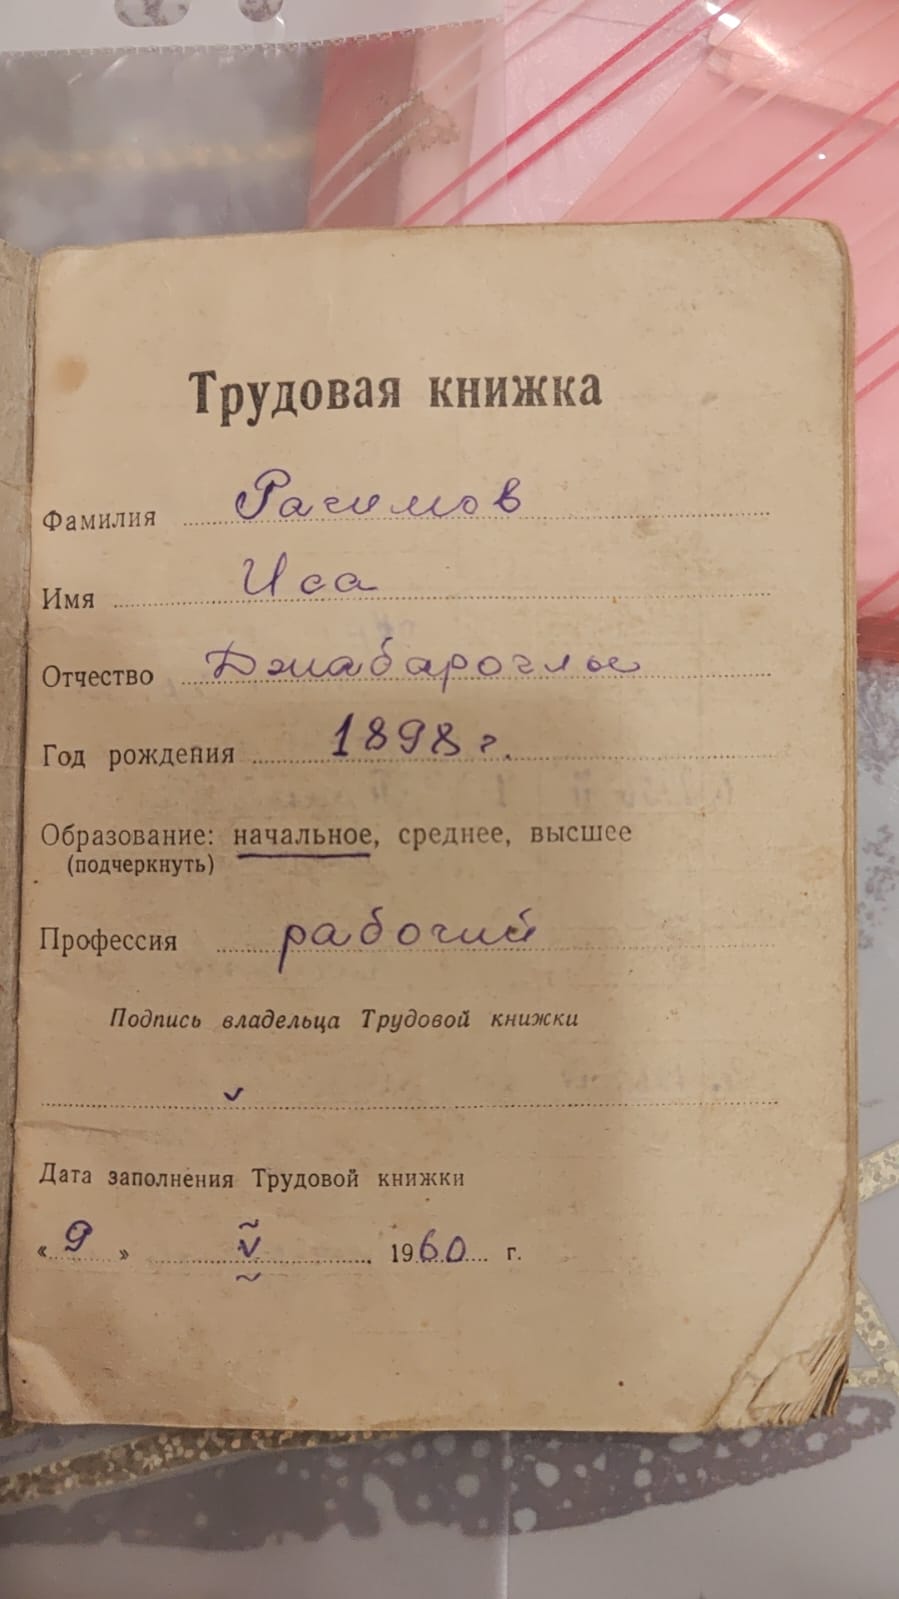 Трудовая книжка
Фамилия Рагимов
Имя Иса
Отчество Джабароглы
Год рождения 1898 г.
Образование: начальное, среднее, высшее
(подчеркнуть)
Профессия рабочий
Подпись владельца Трудовой книжки
Дата заполнения Трудовой книжки
« 9 » V 1960 г.